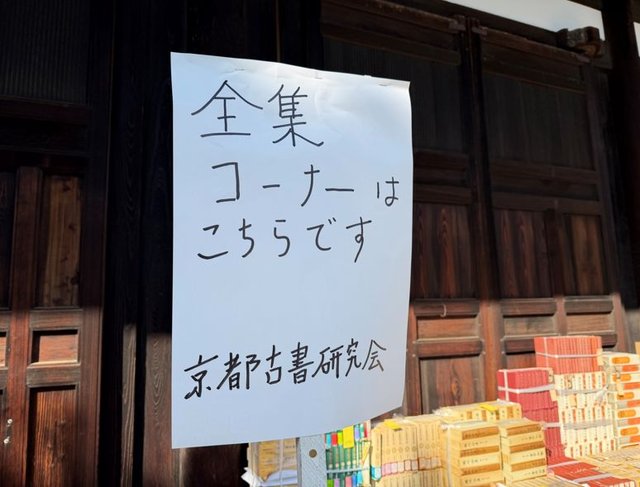 全集
コーナーは
こちらです
京都古書研究会